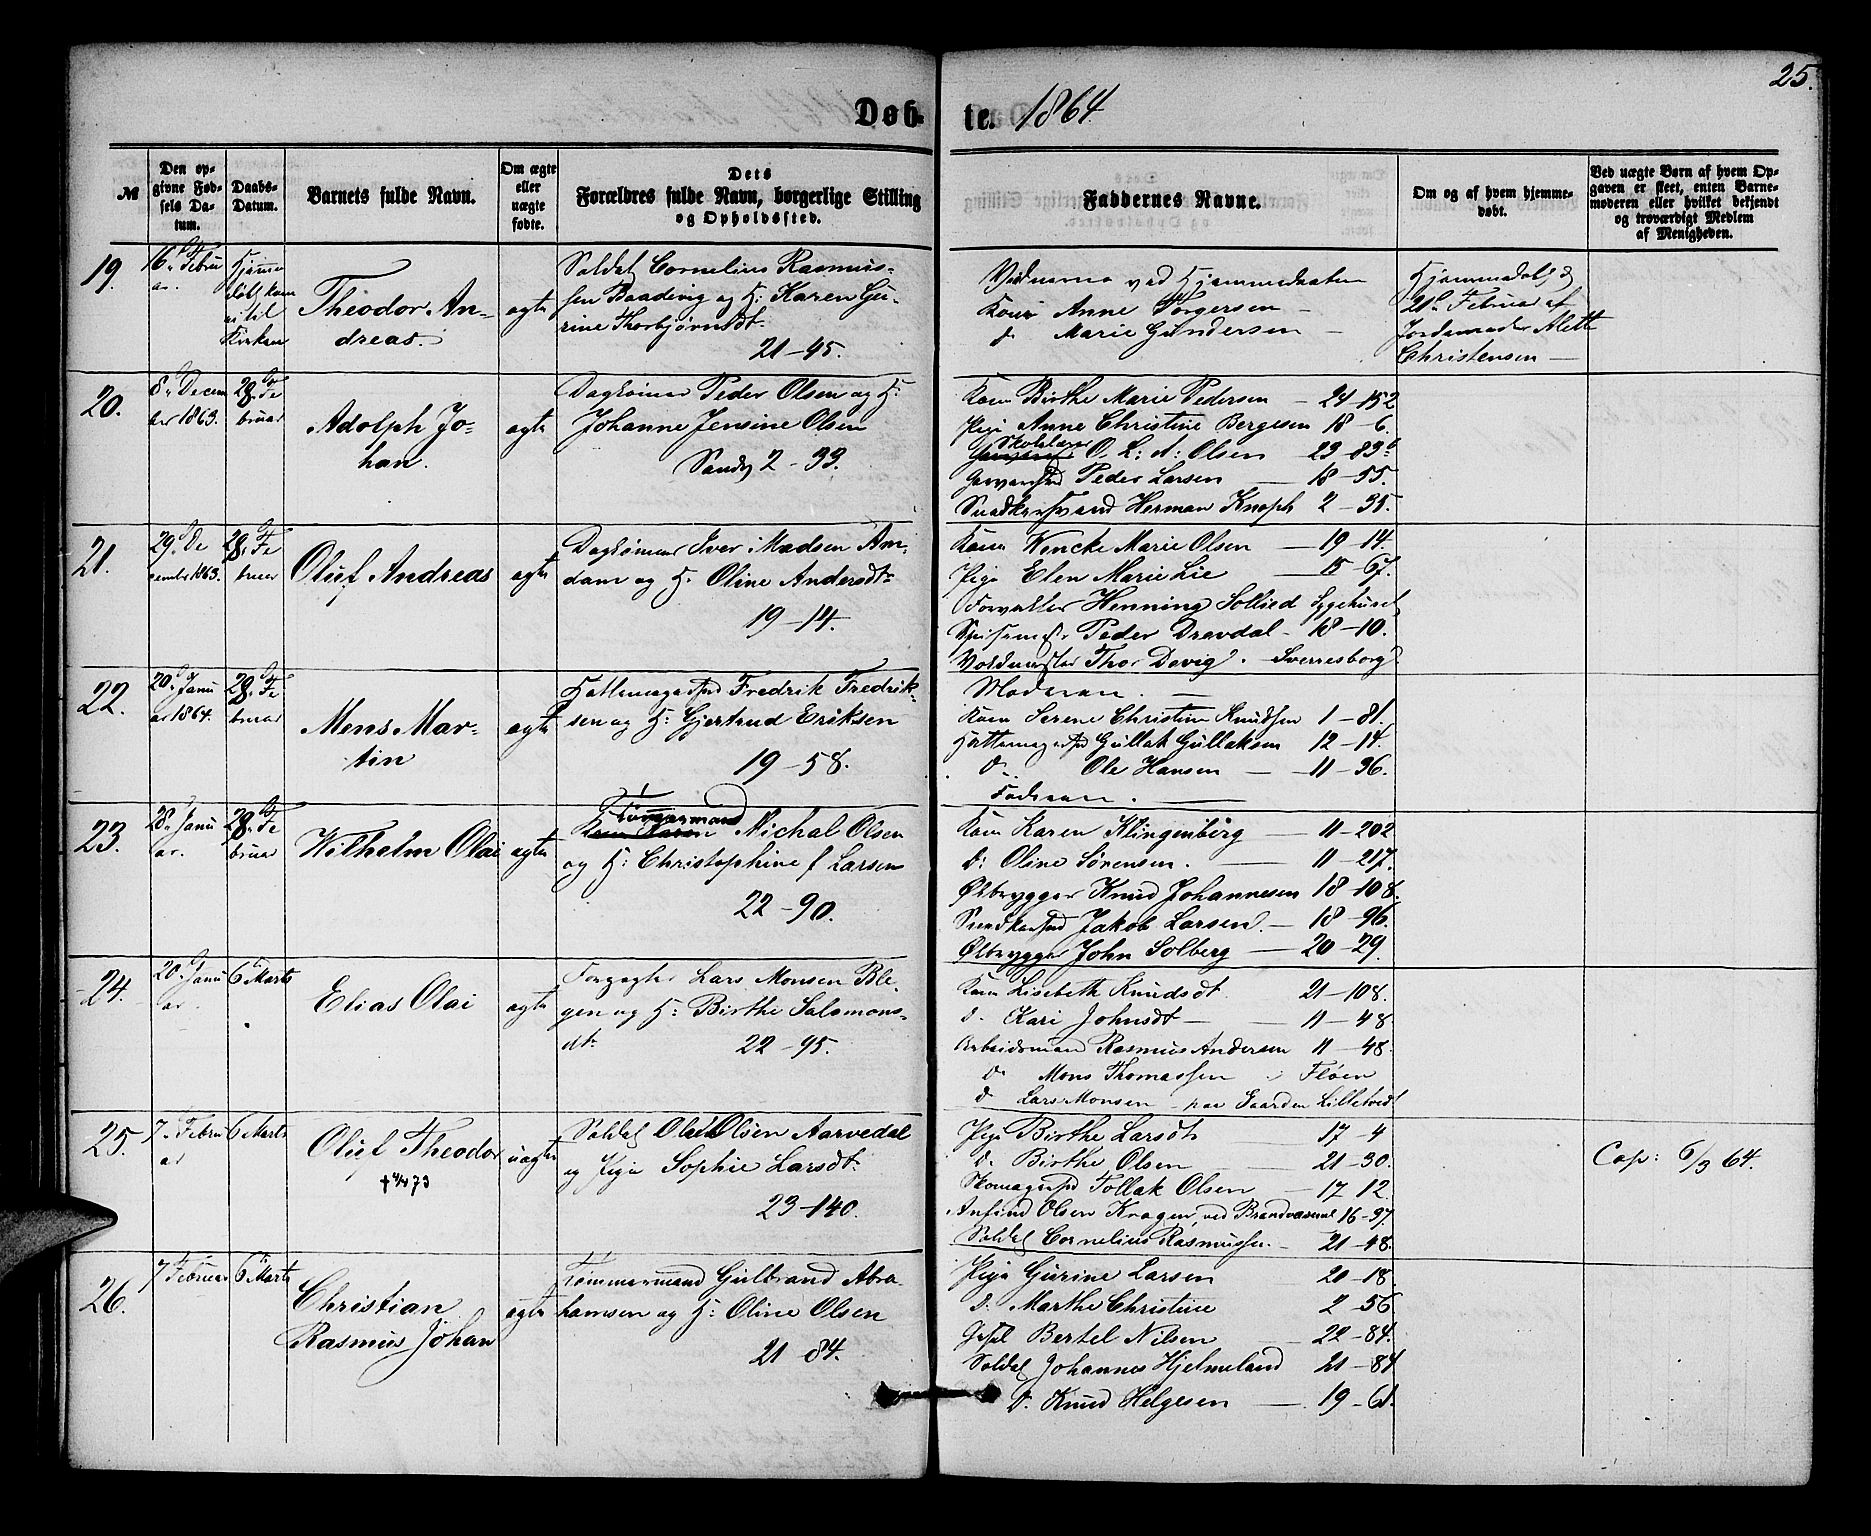 25.
Døbte. 1864.
№
Den opgivne Fødsels Datum.
Daabs-Datum.
Barnets fulde Navn.
Om ægte eller uægte fødte.
Dets Forældres fulde Navn, borgerlige Stilling og Opholdssted.
Faddernes Navne.
Om og af hvem hjemmedøbt.
Ved uægte Børn af hvem Opgaven er skeet, enten Barnemoderen eller hvilket bekjendt og troværdigt Medlem af Menigheden.
19.
16de Februar.
Hjemmedøbt, kom ei til Kirken
Theodor Andreas.
ægte
Soldat Cornelius Rasmus-
sen Baadvig og H: Karen Gu-
rine Thorbjørnsdt.
21-45.
Vidnerne ved Hjemmedaaben
Kone Anne Torgersen
do Marie Gundersen
Hjemmedøbt d
21de Februar af
Jordemoder Alette
Christensen
20.
8de December 1863.
28de Februar
Adolph Johan.
ægte
Peder Olsen og H:
Johanne Jensine Olsen
2-33.
Kone Birthe Marie Pedersen 24-152
Pige Anne Christine Bergesen 18-6.
Skolelærer O. L. A. Olsen 23-83b
Peder Larsen 18-55.
Herman Knoph 2-35.
21.
29de December 1863.
28de Februar
Oluf Andreas
ægte
Iver Madsen Am-
dam og H. Oline Andersdt.
19-14.
Kone Wencke Marie Olsen 19-14.
Pige Elen Marie Lie 15-67.
Forvalter Henning Sollied Sygehuset
Peder Drevdal 18-10.
Voldmester Thor Devig. Sverresborg
22.
20de Januar 1864.
28de Februar
Mons Martin
ægte
Hattemagersvd Fredrik Fredrik-
sen og H. Gjertrud Eriksen
19-58.
Moderen.
Kone Serene Christine Knudsen 1-81.
Hattemagersvd Gullak Gullaksen 12-14.
do Ole Hansen 11-36.
Faderen.
23.
28de Januar.
28de Februar
Wilhelm Olai
ægte
Tømmermand Michal Olsen
og H. Christophine f Larsen
22-90.
Kone Karen Klingenberg 11-202
do Oline Sørensen. 11-217.
Ølbrygger Knud Johannesen 18-108.
Snedkersvd Jakob Larsen. 18-96.
Ølbrygger John Solberg 20-29.
24.
20de Januar.
6te Marts
Elias Olai
ægte
Forgagter Lars Monsen Ble-
gen og H: Birthe Salomons-
dt.
22-95.
Kone Lisebeth Knudsdt. 21-108.
do Kari Johnsdt 11-48.
Arbeidsmand Rasmus Andersen 11-48.
do Mons Thomassen i Fløen
do Lars Monsen paa Gaarden Lilletvedt
25.
7de Februar
6te Marts
Oluf Theodor
uægte
Soldat Ole Olsen Aarvedal
og Pige Sophie Larsdt.
23-140.
Pige Birthe Larsdt. 17-4
do Birthe Olsen 21-30.
Skomagersvd Tollak Olsen 17-12.
Anfind Olsen Kragen, ved Brandvæsenet 16-37.
Soldat Cornelius Rasmussen. 21-48.
Cop: 6/3 64.
26.
7 Februar
6te Marts
Christian
Rasmus Johan
ægte
Tømmermand Gulbrand Abra-
hamsen og H: Oline Olsen
21-84.
Pige Gurine Larsen 20-18.
do Marthe Christine 2-56
Bertel Nilsen 22-84.
Soldat Johannes Hjelmeland 21-84
do Knud Helgesen 19-61.